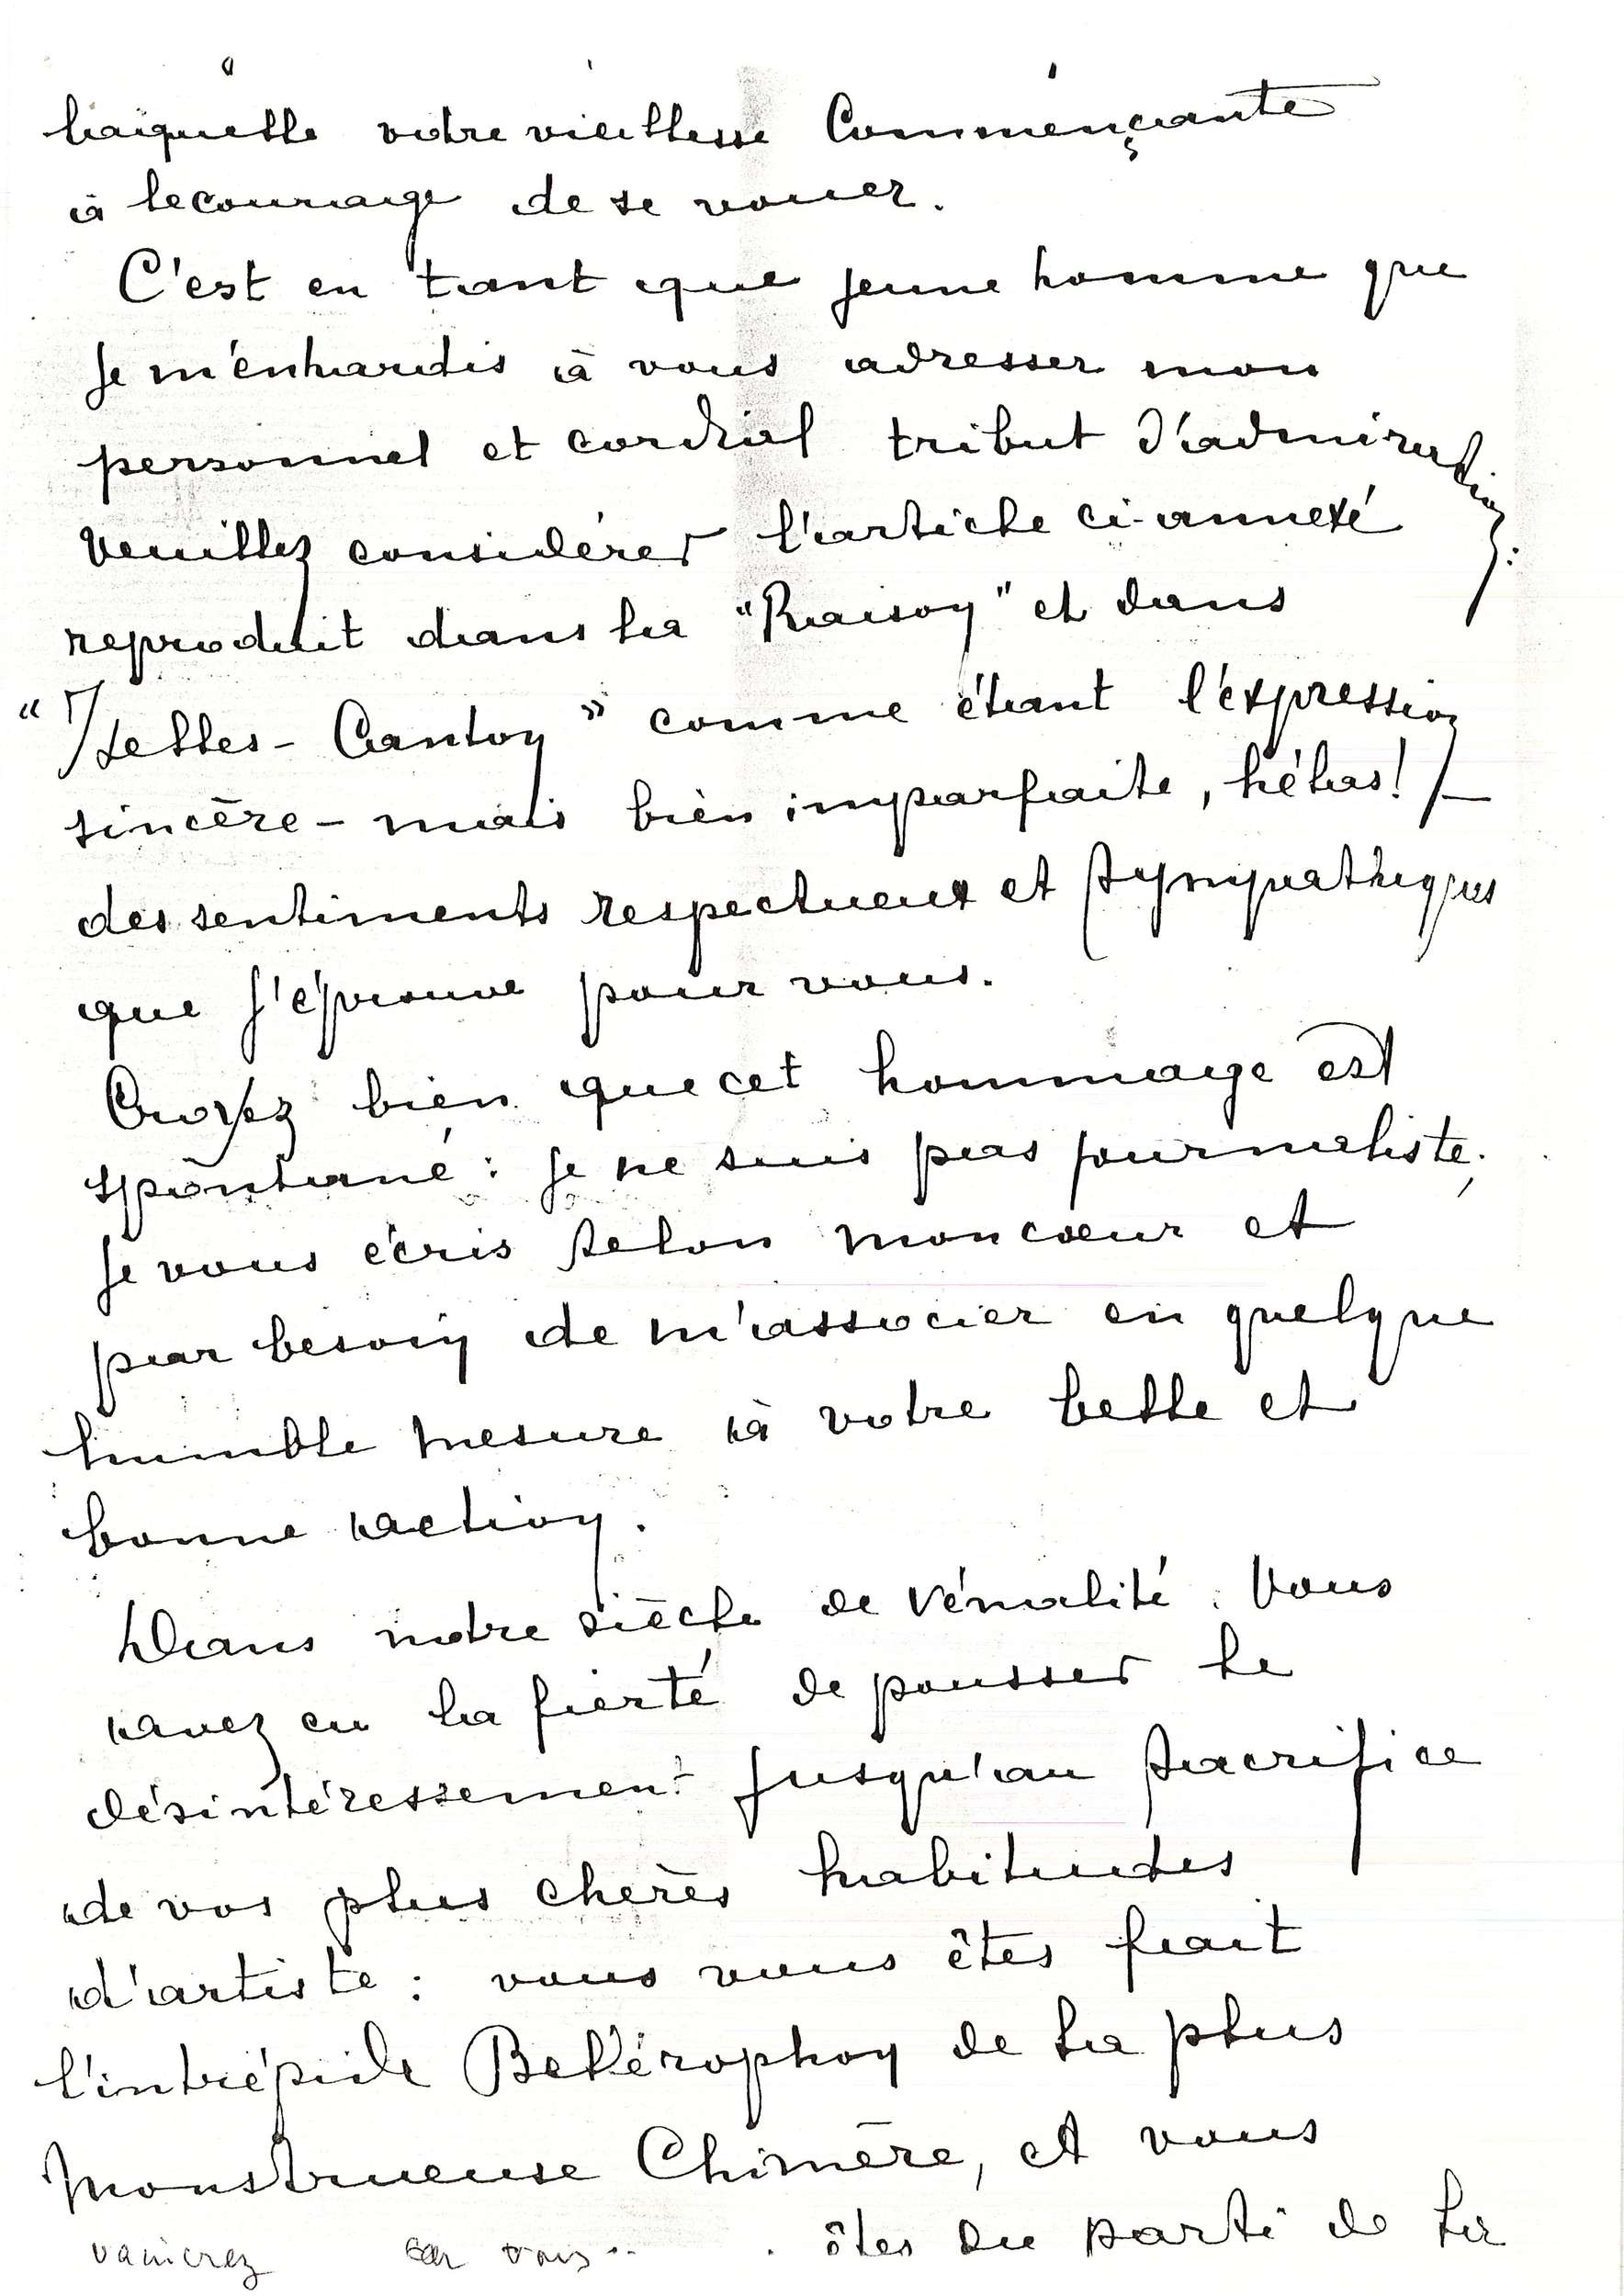 laquelle votre vieillesse Commençante
a le courage de se vouer.
C'est en tant que jeune homme que
je m'enhardis à vous adresser mon
personnel et cordial tribut d'admiration :
veuillez considérer l'article ci-annexé
reproduit dans la "Raison" et dans
"Ixelles-Canton" comme étant l'expression
sincère - mais bien imparfaite, hélas! -
des sentiments respectueux et sympathiques
que j'éprouve pour vous.
Croyez bien que cet hommage est
spontané : je ne suis pas journaliste;
je vous écris selon mon cœur et
par besoin de m'associer en quelque
humble mesure à votre belle et
bonne action.
Dans notre siècle de vénalité, vous
avez eu la fierté de pousser le
désintéressement jusqu'au sacrifice
de vos plus chères habitudes
d'artiste : vous vous êtes fait
l'intrépide Bellérophon de la plus
monstrueuse Chimère, et vous
vaincrez car vous êtes du parti de la